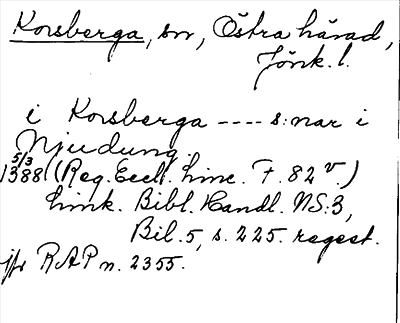 Korsberga, sn, Östra härad,
Jönk. l.
i Korsberga ---- s:nar i
Njudung.
5/3
1388 (Reg. Eccl. Linc. F. 82 v.)
Link. Bibl. Handl. NS:3,
Bil. 5, s. 225. regest.
jfr RAP n. 2355.